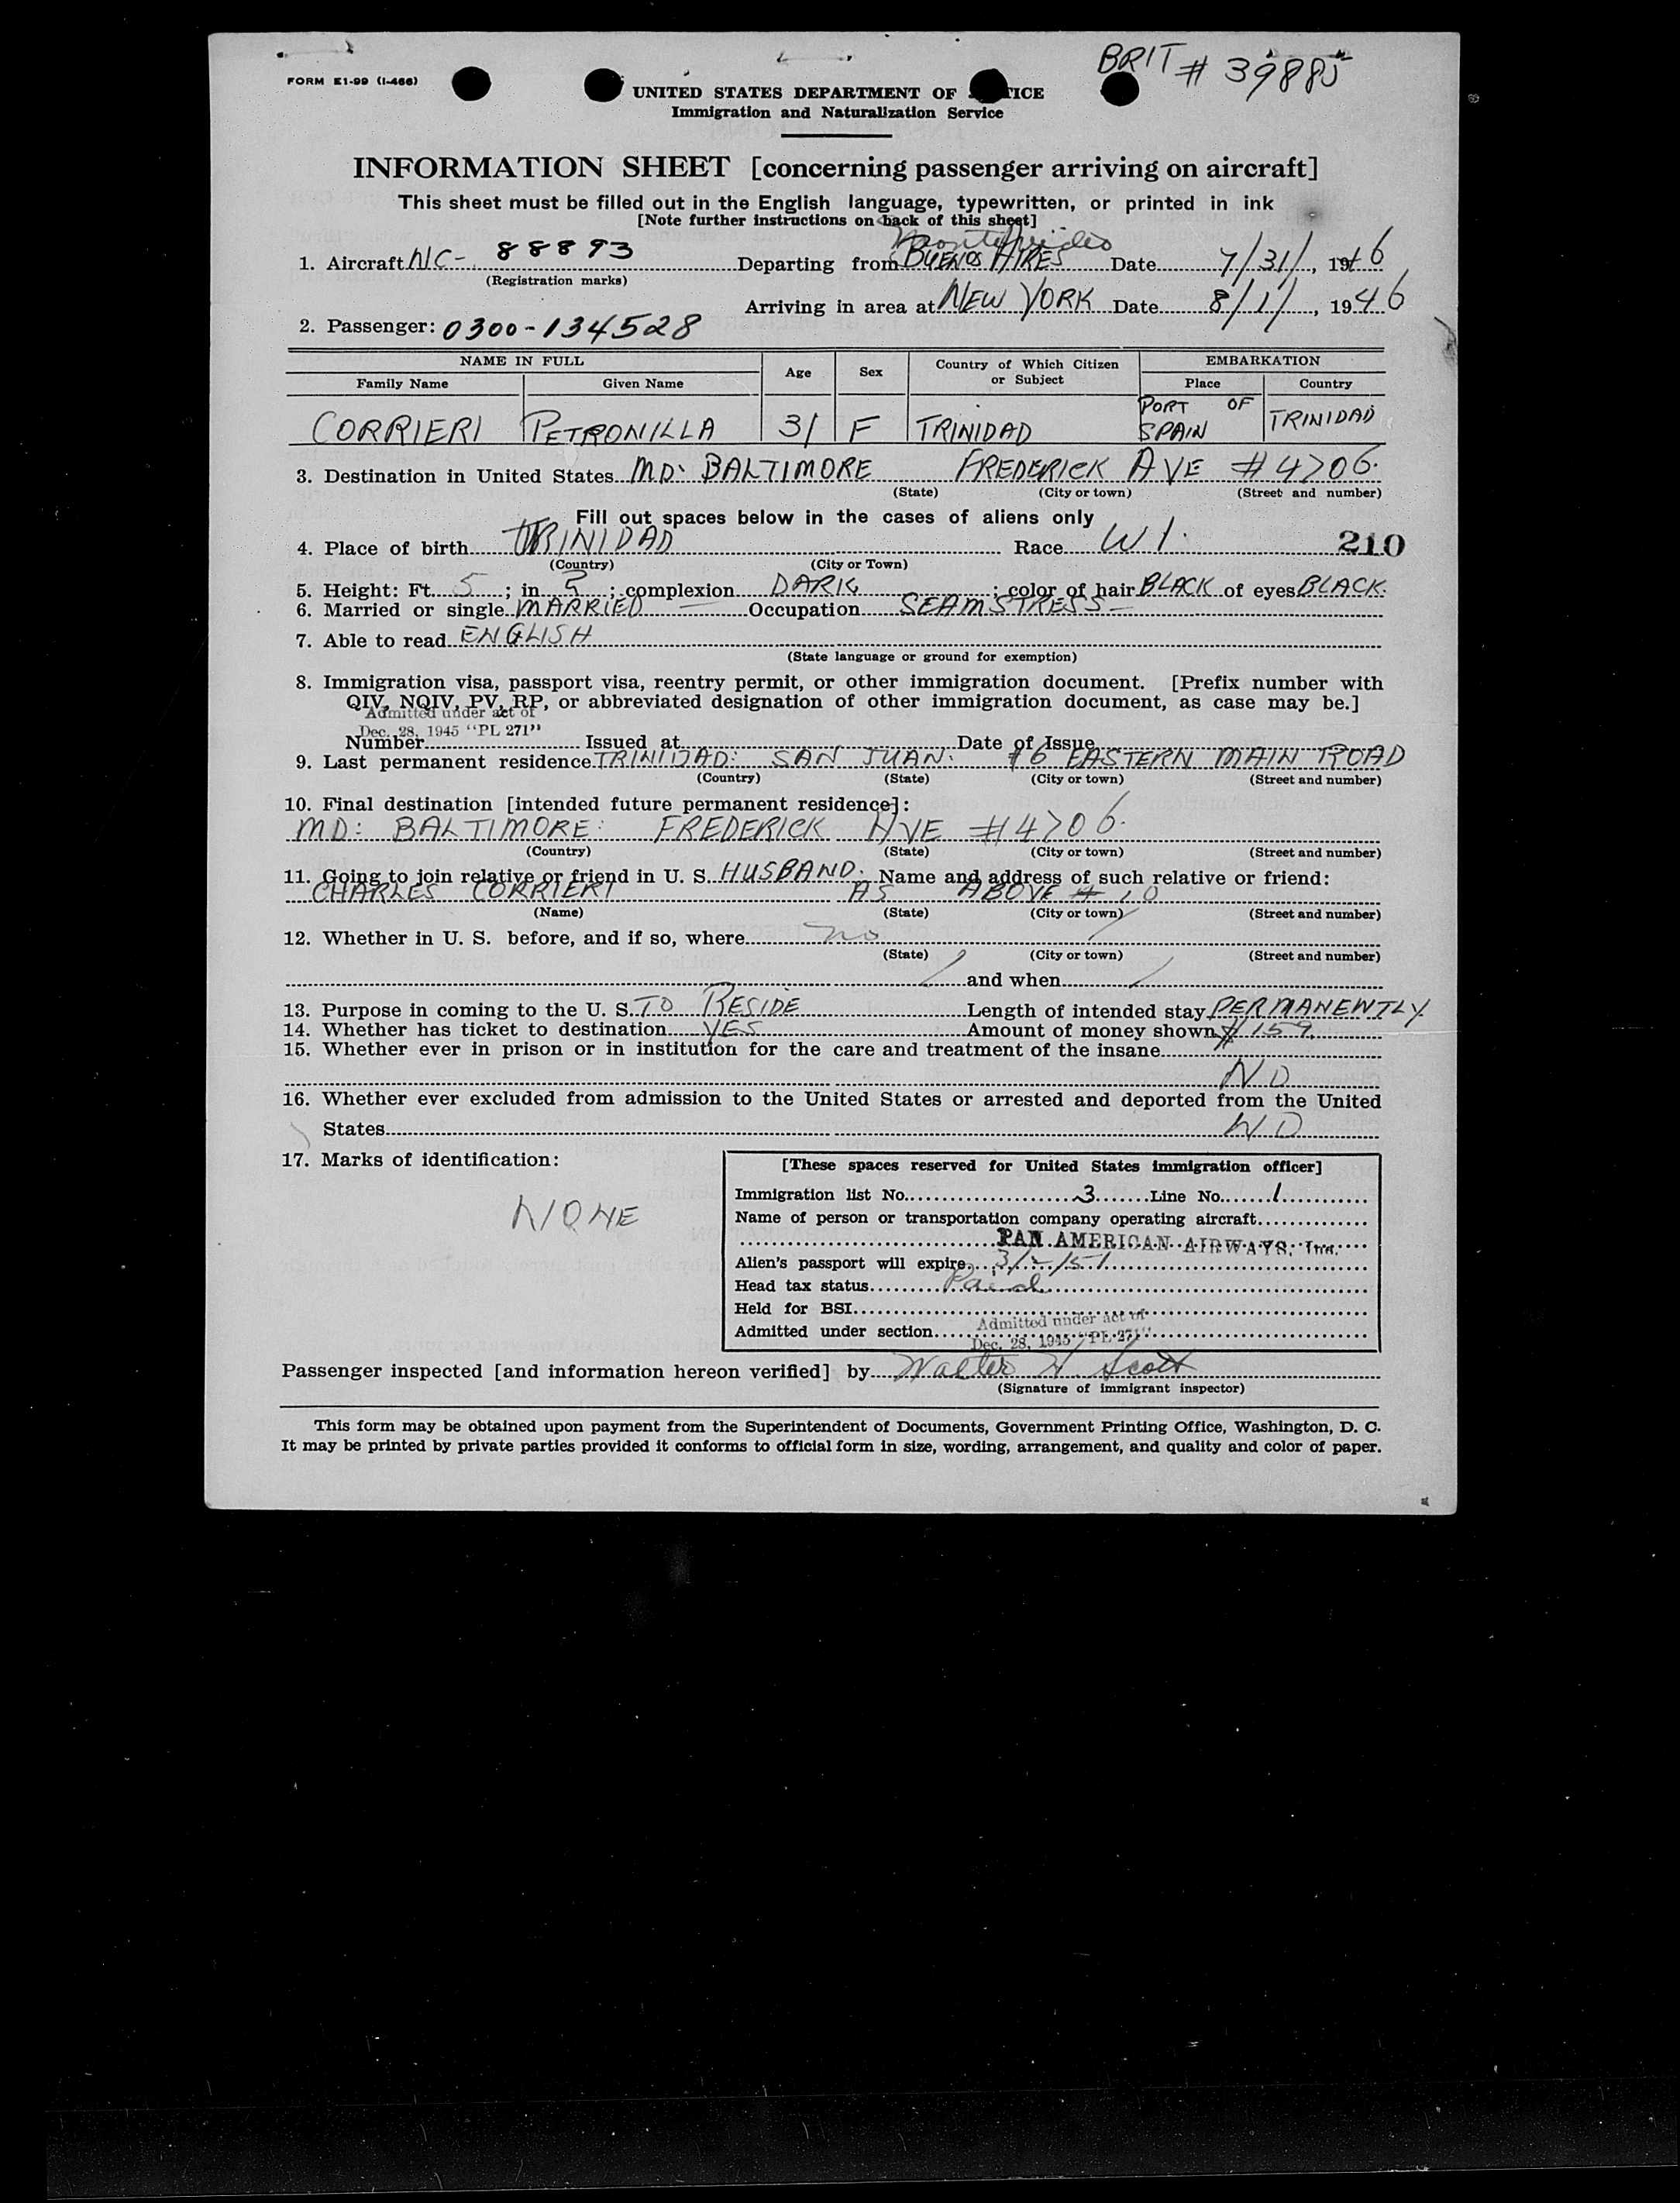 BRIT # 39885
FORM E1-99 (I-466)
UNITED STATES DEPARTMENT OF JUSTICE
Immigration and Naturalization Service
INFORMATION SHEET [concerning passenger arriving on aircraft]
This sheet must be filled out in the English language, typewritten, or printed in ink
[Note further instructions on back of this sheet]
Montevideo
1. Aircraft NC- 88893 Departing from BUENOS AIRES Date 7/31/, 1946
(Registration marks)
Arriving in area at NEW YORK Date 8/1/, 1946
2. Passenger: 0300-134528
NAME IN FULL Age Sex Country of Which Citizen or Subject EMBARKATION
Family Name Given Name Place Country
CORRIERI PETRONILLA 31 F TRINIDAD PORT OF SPAIN TRINIDAD
3. Destination in United States MD. BALTIMORE FREDERICK AVE #4706.
(State) (City or town) (Street and number)
Fill out spaces below in the cases of aliens only
4. Place of birth TRINIDAD Race W I. 210
(Country) (City or Town)
5. Height: Ft. 5; in. 2; complexion DARK; color of hair BLACK of eyes BLACK.
6. Married or single MARRIED Occupation SEAMSTRESS
7. Able to read ENGLISH
(State language or ground for exemption)
8. Immigration visa, passport visa, reentry permit, or other immigration document. [Prefix number with
QIV, NQIV, PV, RP, or abbreviated designation of other immigration document, as case may be.]
Admitted under act of
Dec. 28, 1945 "PL 271"
Number Issued at Date of Issue
9. Last permanent residence TRINIDAD: SAN JUAN. #6 EASTERN MAIN ROAD
(Country) (State) (City or town) (Street and number)
10. Final destination [intended future permanent residence]:
MD: BALTIMORE: FREDERICK AVE #4706.
(Country) (State) (City or town) (Street and number)
11. Going to join relative or friend in U. S. HUSBAND. Name and address of such relative or friend:
CHARLES CORRIERI AS ABOVE # 10
(Name) (State) (City or town) (Street and number)
12. Whether in U. S. before, and if so, where no
(State) (City or town) (Street and number)
and when
13. Purpose in coming to the U. S. TO RESIDE Length of intended stay PERMANENTLY
14. Whether has ticket to destination YES Amount of money shown $159.
15. Whether ever in prison or in institution for the care and treatment of the insane
NO
16. Whether ever excluded from admission to the United States or arrested and deported from the United
States NO
17. Marks of identification:
NONE
[These spaces reserved for United States immigration officer]
Immigration list No. 3 Line No. 1
Name of person or transportation company operating aircraft
PAN AMERICAN AIRWAYS, Inc.
Alien's passport will expire 3/2/51
Head tax status Paid
Held for BSI
Admitted under section Admitted under act of
Dec. 28, 1945 "PL 271"
Passenger inspected [and information hereon verified] by Walter H Scott
(Signature of immigrant inspector)
This form may be obtained upon payment from the Superintendent of Documents, Government Printing Office, Washington, D. C.
It may be printed by private parties provided it conforms to official form in size, wording, arrangement, and quality and color of paper.